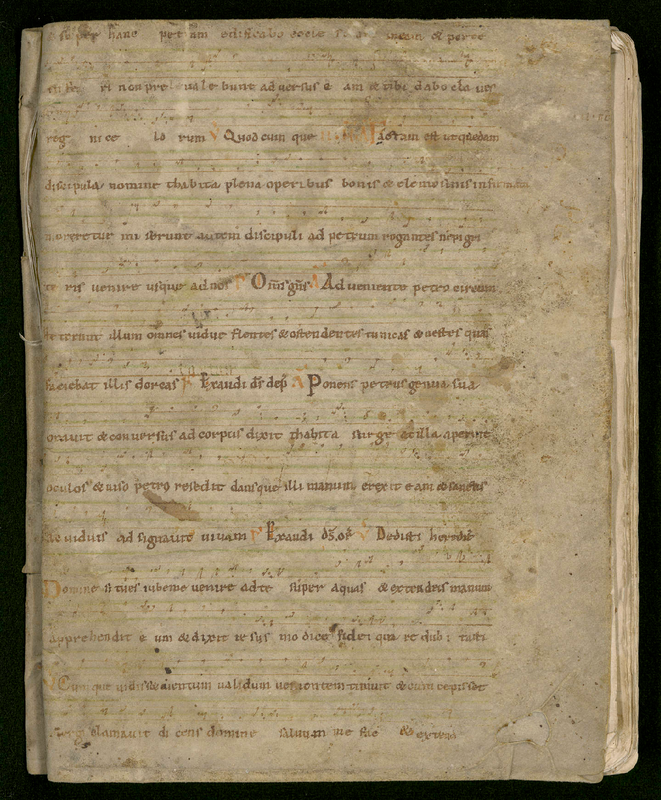 super hanc petram edificabo eccle
non prevale bunt adversus e am & tibi dabo cla ves
reg ni ce lo rum V Quodcum que factum est ut quedam
discipula nomine thabita plena operibus bonis & elemosinis
moreretur mi serunt autem discipuli ad petrum rogantes ne pigri
te ris venire usque ad nos P Om̄s gn̄s A Ad veniente petro
illum omnes vidue flentes & ostendentes tunicas & vestes quas
faciebat illis dorcas P Exaudi ds dep̄ A Ponens petrus genua sua
oravit & conversus ad corpus dixit thabita surge & illa aperuit
oculos & viso petro resedit dansque illi manum erexit e am
viduis ad signavit vivam P Exaudi ds or V Dedisti heredit
Domine si tu es iube me venire ad te super aquas & extendens manum
apprehendit e um & dixit ie sus mo dice fidei qua re dubi tasti
Cumque vidisset ventum validum venientem timuit & cum cepisset
mergi clamavit di cens domine salvum me fac & extens